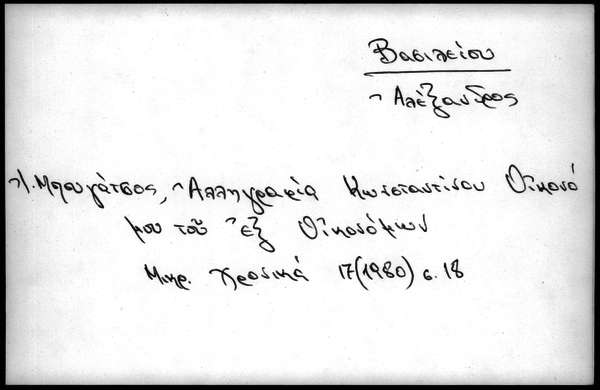 Βασιλείου
Ἀλέξανδρος
Ἰ. Μπουγάτσος, Ἀλληγραφία Κωνσταντίνου Οἰκονό
μου τοῦ ἐξ Οἰκονόμων
Μικρ. Χρονικά 17(1980) σ. 18